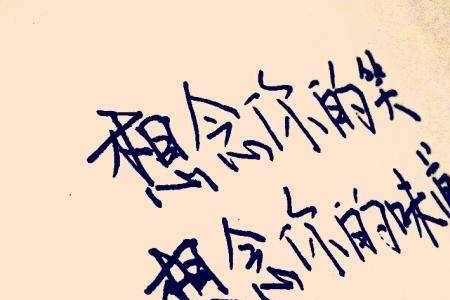 想念你的笑
想念你的味